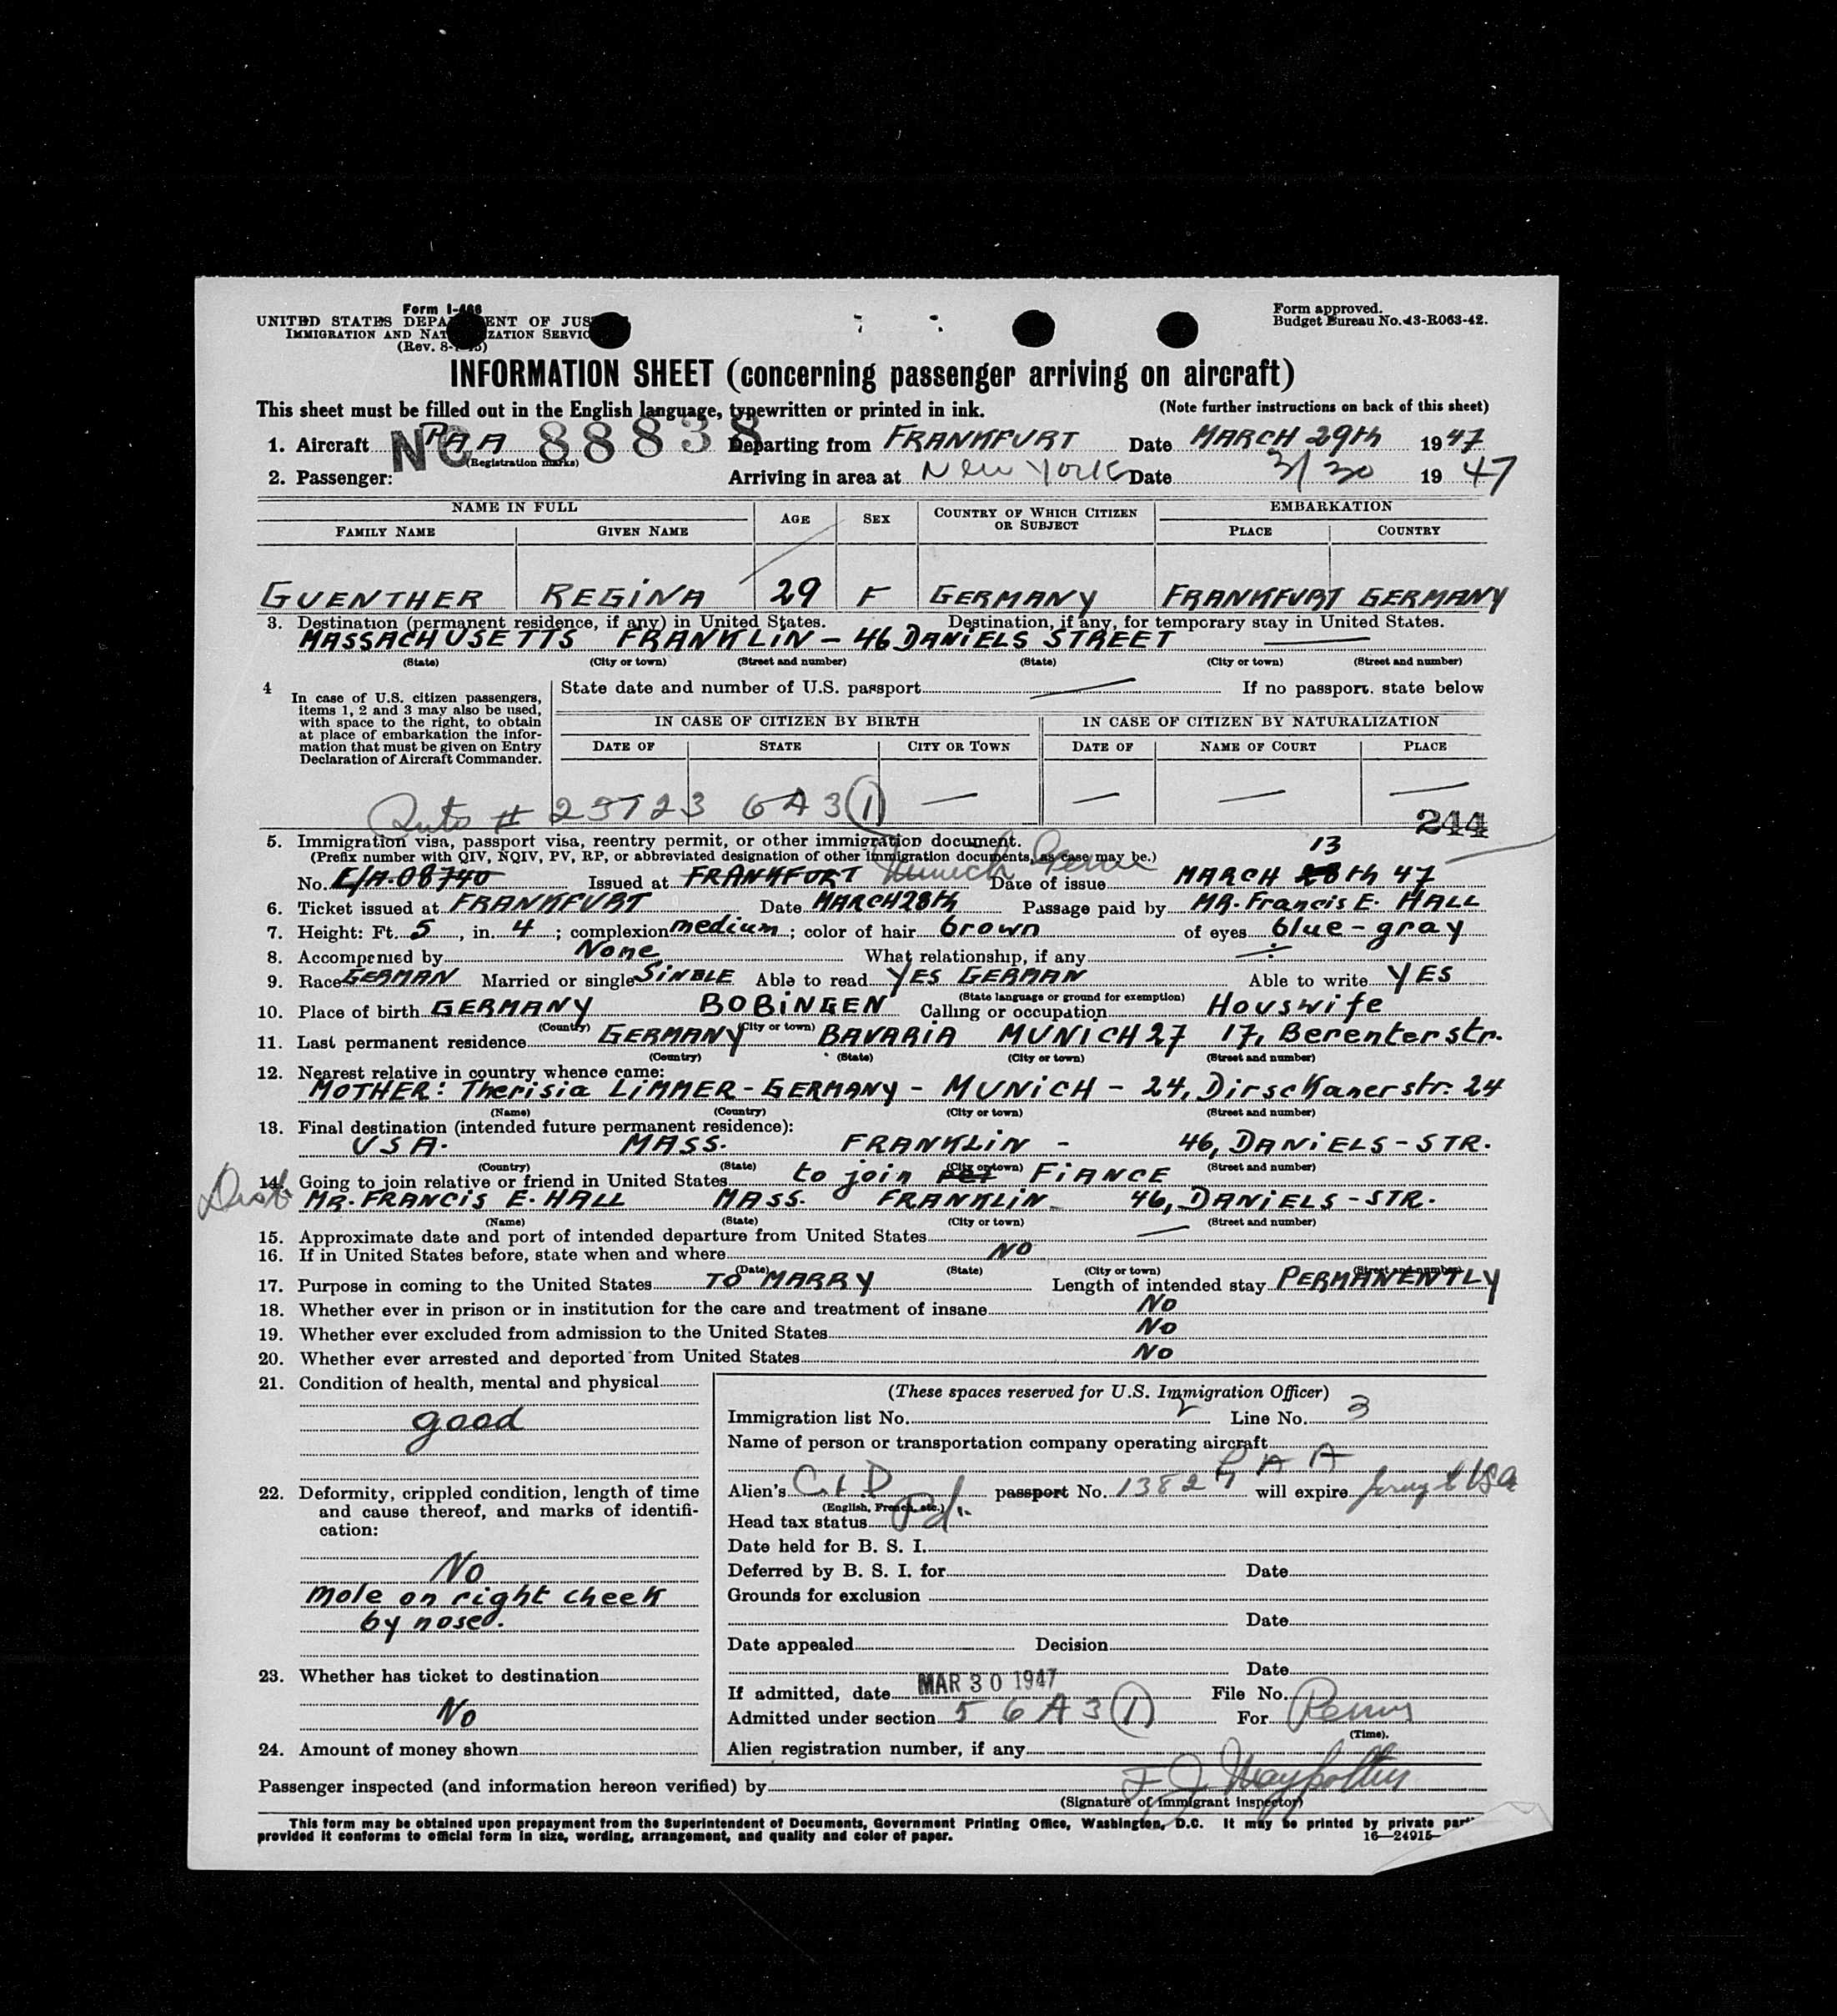 Form I-466
UNITED STATES DEPARTMENT OF JUSTICE
IMMIGRATION AND NATURALIZATION SERVICE
(Rev. 8-
Form approved.
Budget Bureau No. 43-R063-42.
INFORMATION SHEET (concerning passenger arriving on aircraft)
This sheet must be filled out in the English language, typewritten or printed in ink. (Note further instructions on back of this sheet)
1. Aircraft PAA NC 88838 (Registration marks) Departing from FRANKFURT Date MARCH 29th 1947
2. Passenger: Arriving in area at New York Date 3/30 1947
NAME IN FULL AGE SEX COUNTRY OF WHICH CITIZEN OR SUBJECT EMBARKATION
FAMILY NAME GIVEN NAME PLACE COUNTRY
GUENTHER REGINA 29 F GERMANY FRANKFURT GERMANY
3. Destination (permanent residence, if any) in United States. Destination, if any, for temporary stay in United States.
MASSACHUSETTS FRANKLIN - 46 DANIELS STREET —
(State) (City or town) (Street and number) (State) (City or town) (Street and number)
4 In case of U.S. citizen passengers, items 1, 2 and 3 may also be used, with space to the right, to obtain at place of embarkation the information that must be given on Entry Declaration of Aircraft Commander.
State date and number of U.S. passport — If no passport, state below
IN CASE OF CITIZEN BY BIRTH IN CASE OF CITIZEN BY NATURALIZATION
DATE OF STATE CITY OR TOWN DATE OF NAME OF COURT PLACE
# 23723 6A3(1) — — — —
244
5. Immigration visa, passport visa, reentry permit, or other immigration document.
(Prefix number with QIV, NQIV, PV, RP, or abbreviated designation of other immigration documents, as case may be.)
13
No. E/A-08740 Issued at FRANKFORT Munich Germ Date of issue MARCH 28th 47
6. Ticket issued at FRANKFURT Date MARCH 28th Passage paid by MR. Francis E. HALL
7. Height: Ft. 5, in. 4; complexion medium; color of hair brown of eyes blue-gray
8. Accompanied by None What relationship, if any ÷
9. Race GERMAN Married or single SINGLE Able to read YES GERMAN Able to write YES
(State language or ground for exemption)
10. Place of birth GERMANY BOBINGEN Calling or occupation Houswife
(Country) (City or town)
11. Last permanent residence GERMANY BAVARIA MUNICH 27 17, Berenterstr.
(Country) (State) (City or town) (Street and number)
12. Nearest relative in country whence came:
MOTHER: Therisia LIMMER - GERMANY - MUNICH - 24, Dirschanerstr. 24
(Name) (Country) (City or town) (Street and number)
13. Final destination (intended future permanent residence):
USA. MASS. FRANKLIN - 46, DANIELS-STR.
(Country) (State) (City or town) (Street and number)
14. Going to join relative or friend in United States to join FIANCE
MR. FRANCIS E. HALL MASS. FRANKLIN 46, DANIELS-STR.
(Name) (State) (City or town) (Street and number)
15. Approximate date and port of intended departure from United States —
16. If in United States before, state when and where NO
(Date) (State) (City or town) (Street and number)
17. Purpose in coming to the United States TO MARRY Length of intended stay PERMANENTLY
18. Whether ever in prison or in institution for the care and treatment of insane No
19. Whether ever excluded from admission to the United States No
20. Whether ever arrested and deported from United States No
21. Condition of health, mental and physical
good
22. Deformity, crippled condition, length of time and cause thereof, and marks of identification:
No
mole on right cheek
by nose.
23. Whether has ticket to destination
No
24. Amount of money shown
(These spaces reserved for U.S. Immigration Officer)
Immigration list No. 2 Line No. 3
Name of person or transportation company operating aircraft
PAA
Alien's passport No. 13827 will expire
(English, French, etc.)
Head tax status Pd.
Date held for B. S. I.
Deferred by B. S. I. for Date
Grounds for exclusion
Date
Date appealed Decision
Date
If admitted, date MAR 30 1947 File No.
Admitted under section 5 6A3(1) For Perm
(Time).
Alien registration number, if any
Passenger inspected (and information hereon verified) by
(Signature of immigrant inspector)
This form may be obtained upon prepayment from the Superintendent of Documents, Government Printing Office, Washington, D.C. It may be printed by private
provided it conforms to official form in size, wording, arrangement, and quality and color of paper. 16—24915-